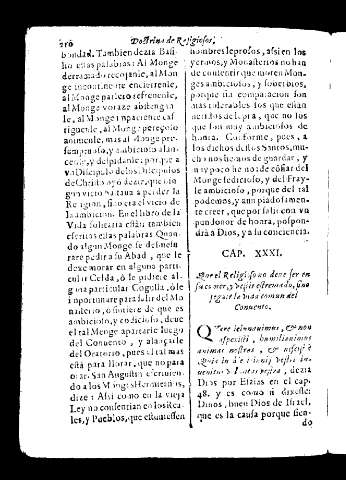 210 Doctrina de Religiosos,
bondad. Tambien dezia Basi-
lio estas palabras: Al Monge
derramado recoganle, al Mon-
ge incontinente encierrenle,
al Monge parlero refrenenle,
al Monge voraz abstengan-
le, al Monge impaciente cas-
tiguenle, al Monge perezoso
animenle, mas al Monge pre-
sumptuoso, y ambicioso alan-
cenle, y despidanle: porque a
un Discipulo de los Discipulos
de Christo oyò dezir, que nin-
gun vicio basta a perder la
Religion, sino era el vicio de
la ambicion. En el libro de la
Vida solitaria estàn tambien
escritas estas palabras. Quan-
do algun Monge se desman-
rare pedir a su Abad, que le
dexe morar en alguna parti-
cular Celda, ò le pidiere al-
guna particular Cogulla, ò le
importunare para salir del Mo-
nasterio, o sintiere de que es
ambicioso, y codicioso, deve
el tal Monge apartarle luego
del Convento, y alançarle
del Oratorio, pues el tal mas
està para llorar, que no para
orar. San Augustin escrivien-
do a los Monges Hermitaños,
dize: Assi como en la vieja
Ley no consentian en los Rea-
les, y Pueblos, que estuviessen
hombres leprosos, assi en los
yermos, y Monasterios no han
de consentir que moren Mon-
ges ambiciosos, y sobervios,
porque sin comparacion son
mas tolerables los que estan
heridos de lepra, que no los
que son muy ambiciosos de
honra. Conforme, pues, a
los dichos destos Santos, mu-
cho nos hemos de guardar, y
muy poco he nos de cõfiar del
Monge sedicioso, y del Fray-
le ambicioso, porque del tal
podemos, y aun piadosamen-
te creer, que por salir con un
pundonor de honra, pospon-
drà a Dios, y a su conciencia.
CAP. XXXI.
Que el Religioso no deve ser en
su comer, y vestir estremado, sino
seguir la vida comun del
Convento.
Quare ieiunavimus, & non
aspexisti, humiliavimus
animas nostras, & nescisti?
Quia in die ieiunij vestri in-
venitur voluntas vestra, dezia
Dios por Esaias en el cap.
48. y es como si dixesse:
Dinos, buen Dios de Israel,
que es la causa porque sien-
do